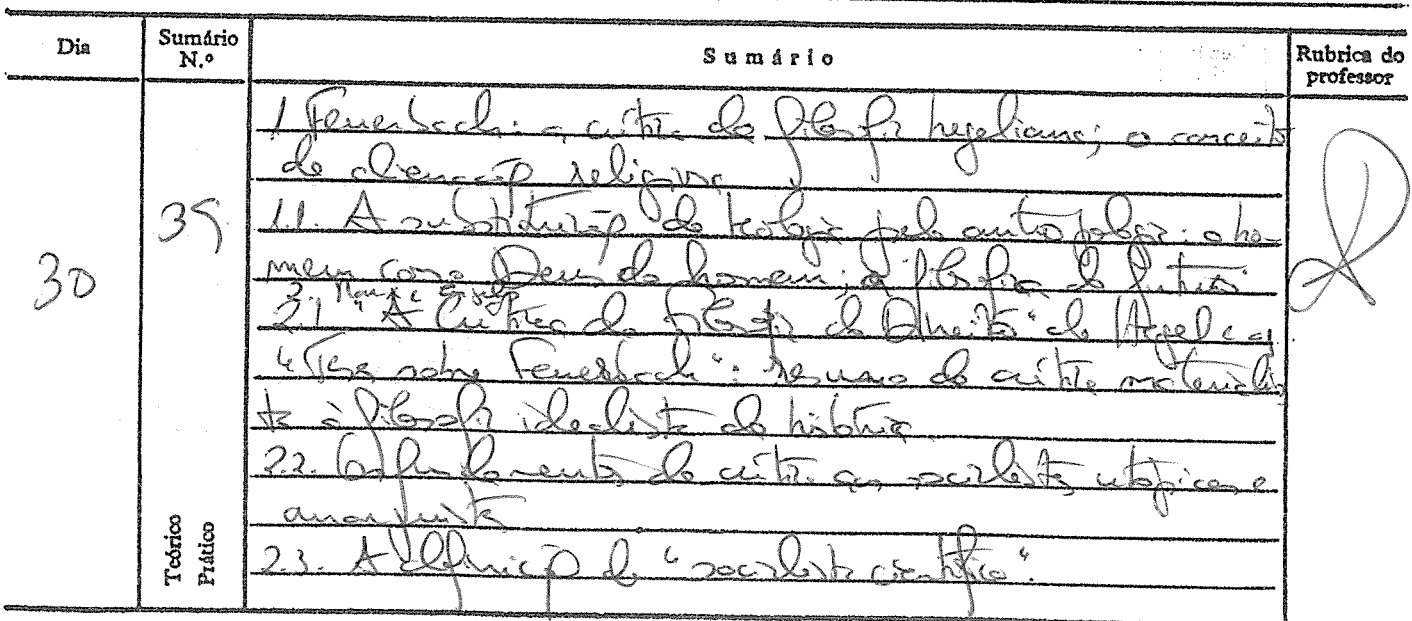 Dia
Sumário N.º
Sumário
Rubrica do professor
30
39
Teórico
Prático
1. Feuerbach: a crítica da filosofia hegeliana; o conceito
de alienação religiosa
1.1. A substituição da teologia pela antropologia: o ho-
mem como Deus do homem; a filosofia do futuro
2. Marx e Engels
2.1 "A Crítica da Filosofia do Direito" de Hegel e as
"Teses sobre Feuerbach": resumo da crítica materialis
ta à filosofia idealista da história.
2.2. Os fundamentos da crítica aos socialistas utópicos e
anarquistas
2.3. A definição de "socialista científico".